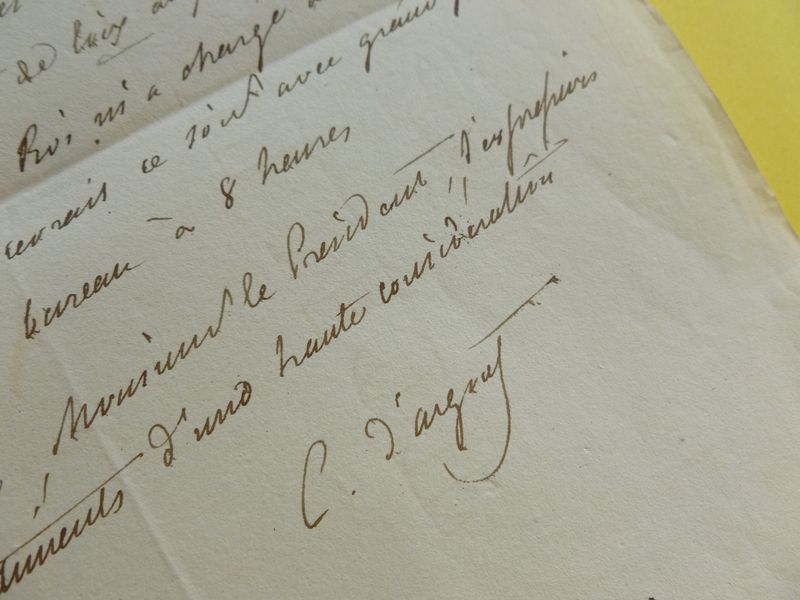 de
Roi m'a chargé
recevrais ce soir avec grand
bureau à 8 heures
Monsieur le Président, d'expressions
sentiments d'une haute considération
C. d'argout